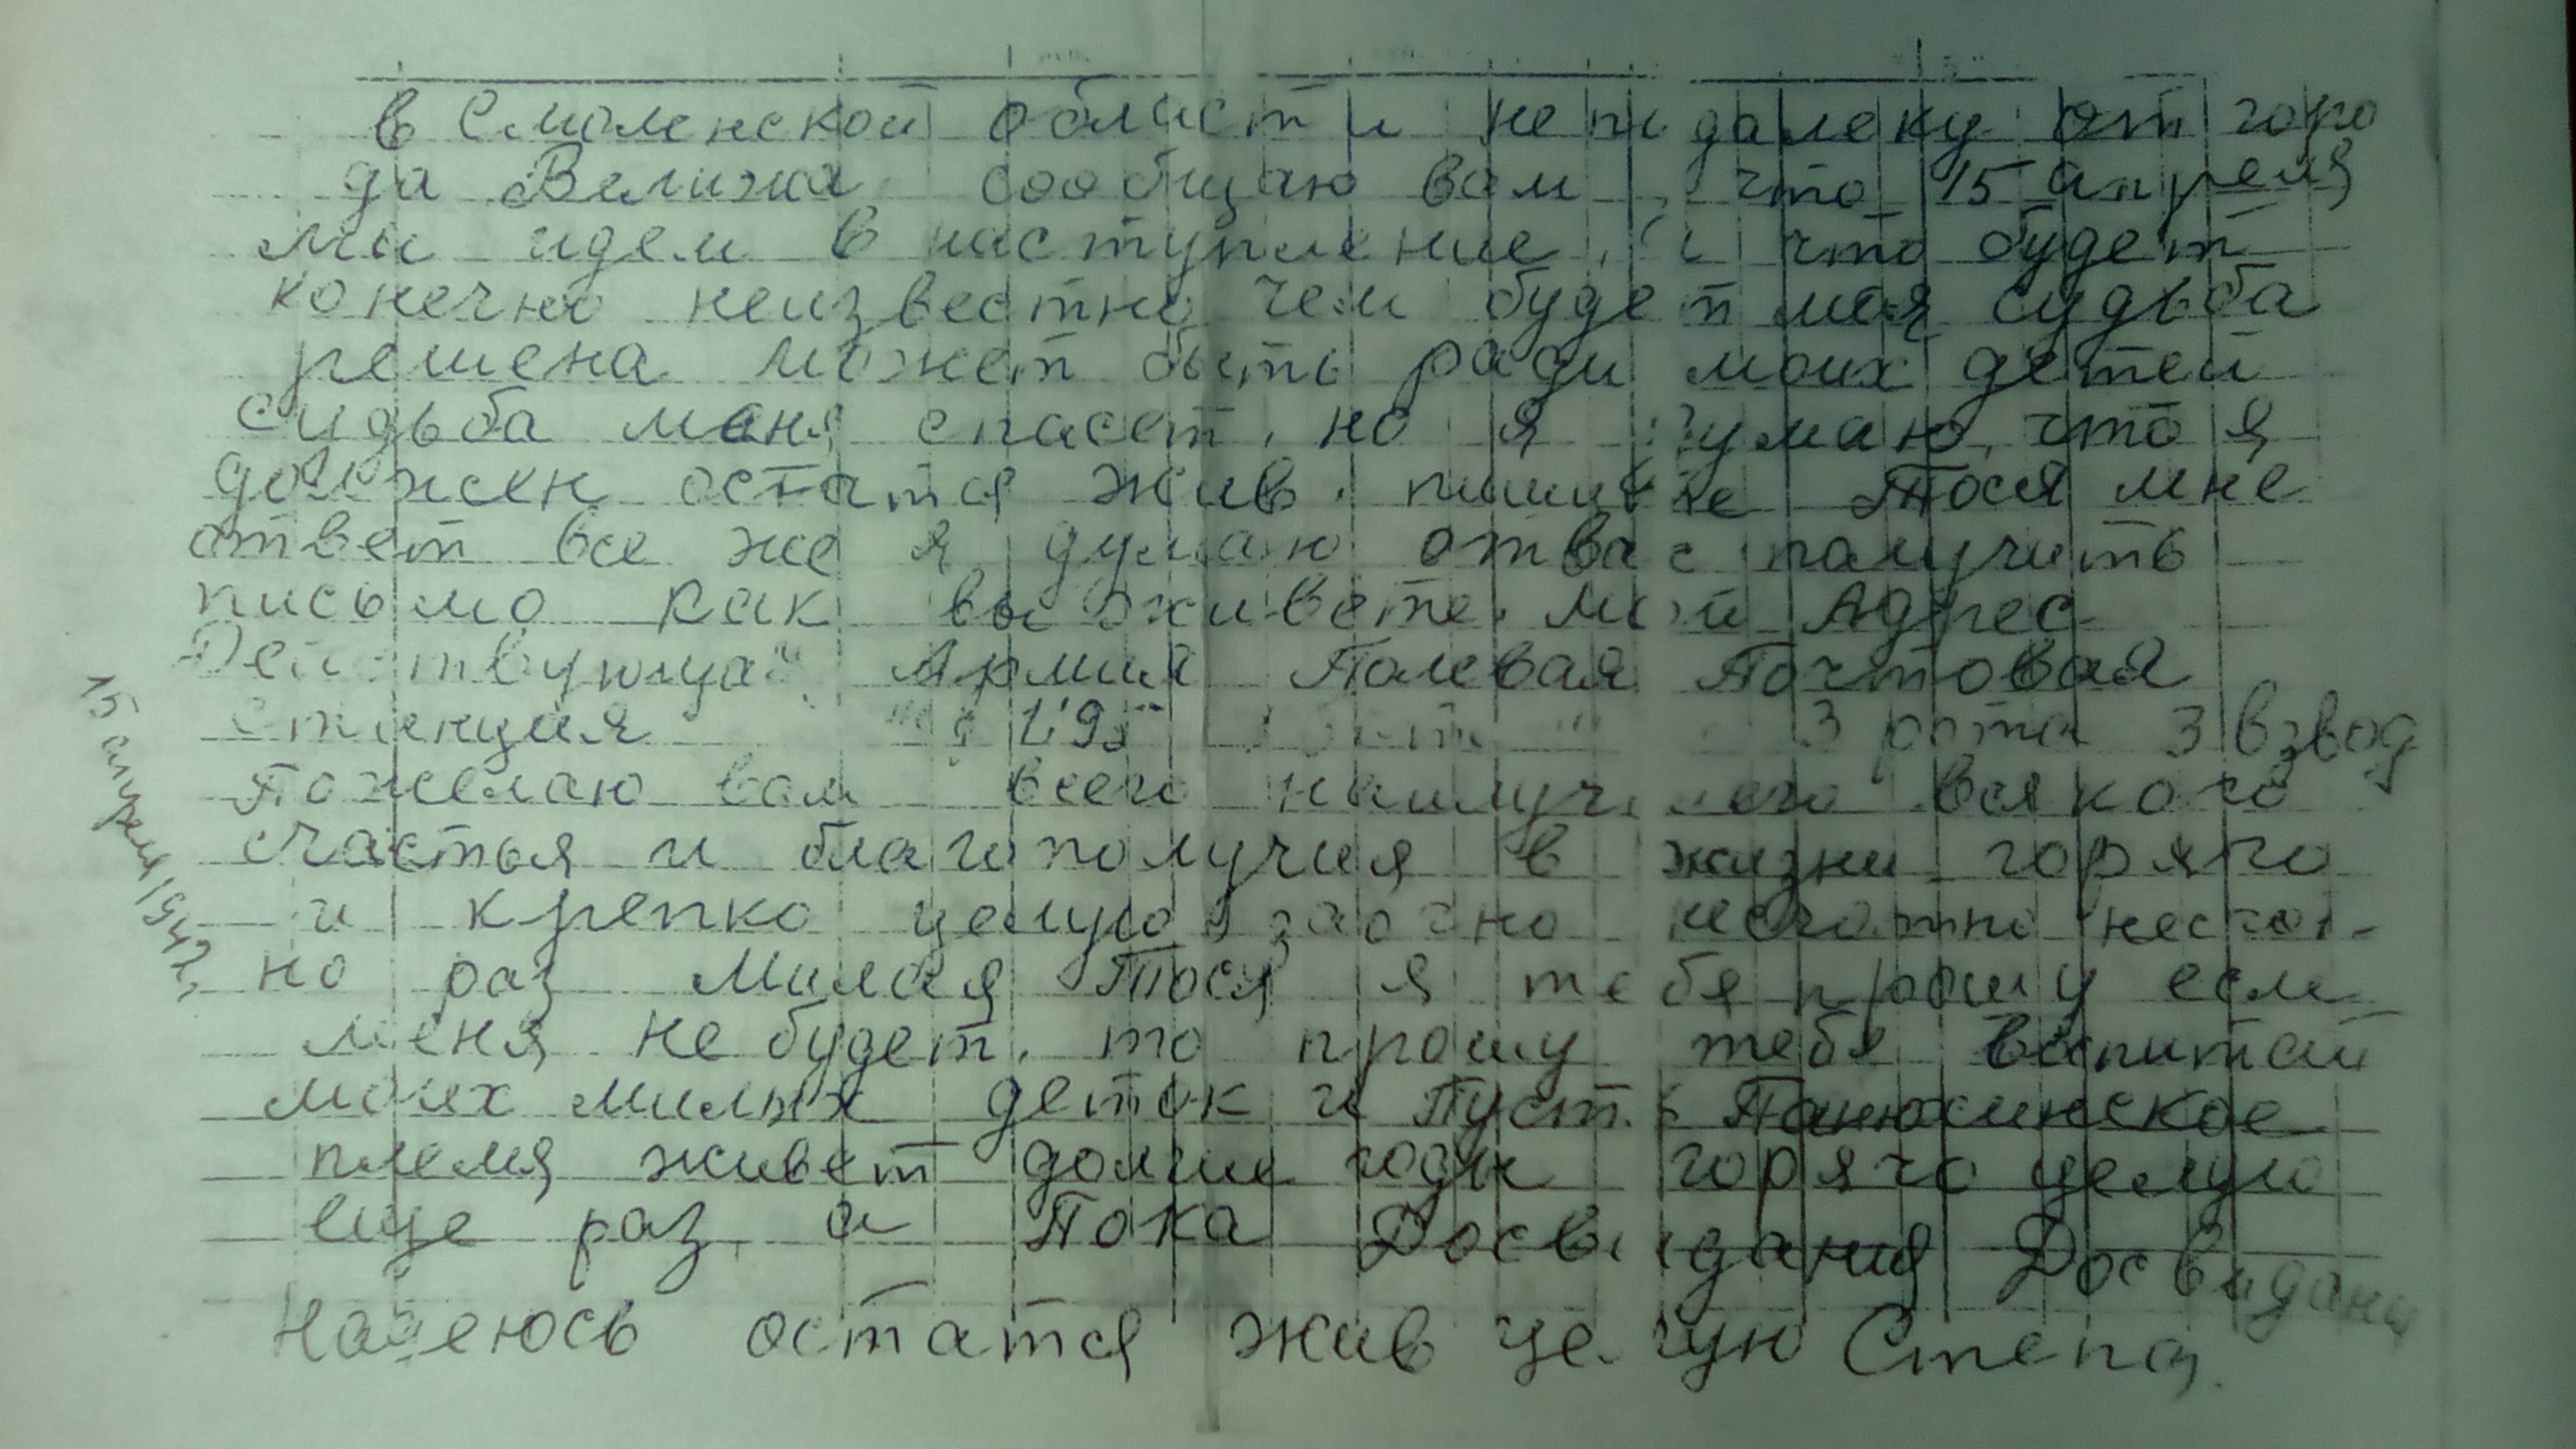 в Смоленской области неподалеку от горо
да Велижа сообщаю вам, что 15 апреля
мы идем в наступление, и что будет
конечно неизвестно чем будет моя судьба
решена может быть ради моих детей
судьба меня спасет, но я думаю, что я
должен остатся жив. пишите Тося мне
ответ все же я думаю от вас палучить
письмо как вы живете. мой Адрес
Действующая Армия Полевая Почтовая
станция 3 рота 3 взвод
Пожелаю вам всего наилучшего всякого
счастья и благополучия в жизни горячо
и крепко целую заочно несчотно несчот-
но раз Милая Тося я тебя прошу если
меня не будет, то прошу тебя воспитай
моих милых деток и Пусть Панюсинское
племя живет долгие годы горячо целую
еще раз, а Пока Досвидания Досвидания
Надеюсь остатся жив целую Степа
15 апреля 1942